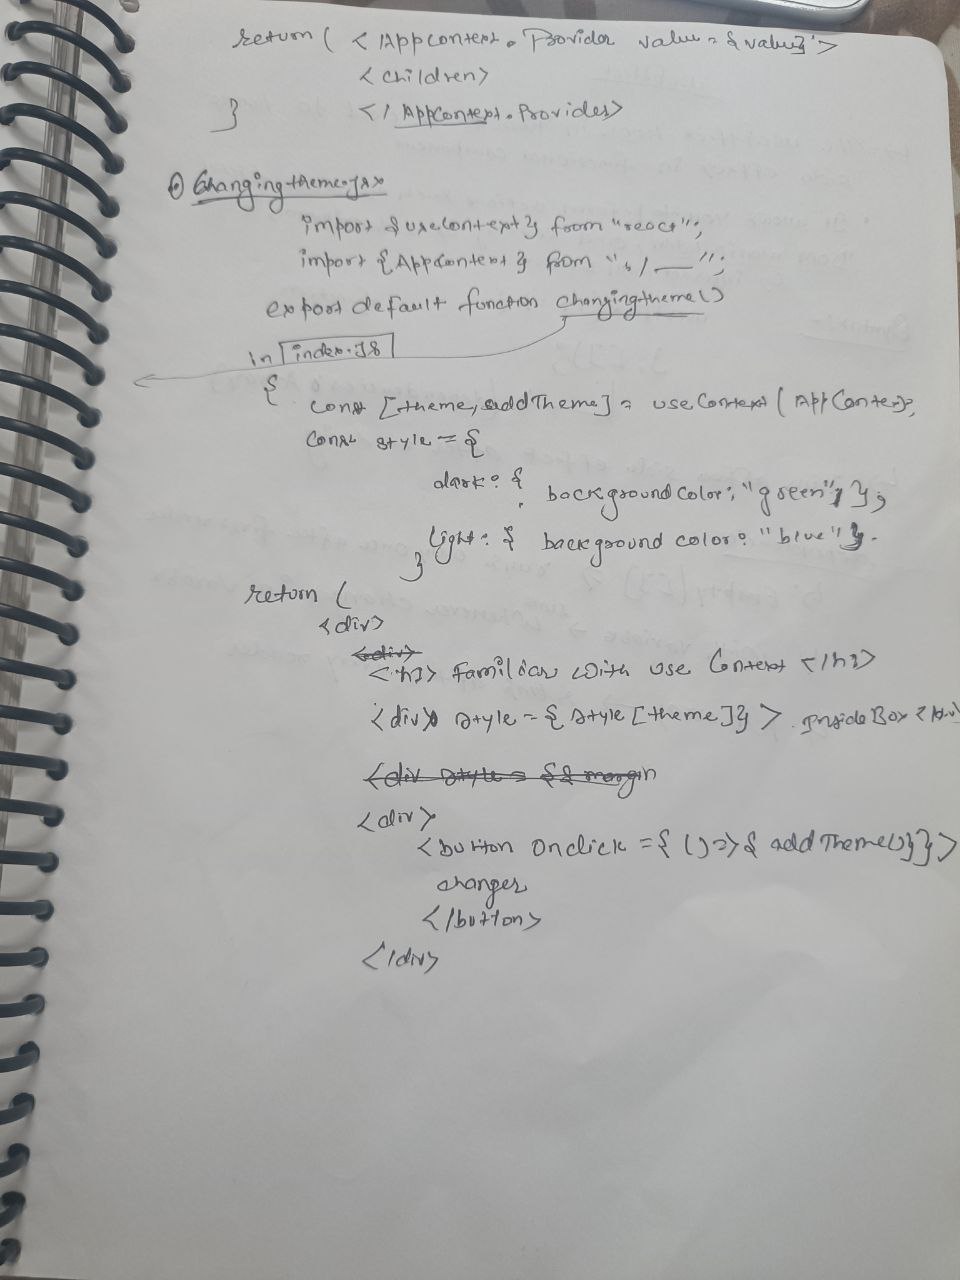 return ( <AppContext.Provider value={value}>
<children>
} </AppContext.Provider>
Changingtheme.jsx
import {useContext} from "react";
import {AppContext} from "./ __ ";
export default function changingtheme()
in index.js
{
const [theme, addTheme] = useContext(AppContext,
const style = {
dark: { backgroundcolor: "green"; },
light: { background color: "blue" }.
}
return (
<div>
<div>
<h1> Familiar with use Context </h1>
<div> style={style[theme]}> InsideBox </div>
<div style = {{ margin
<div>
<button onclick ={()=>{ addTheme()}}>
changer
</button>
</div>